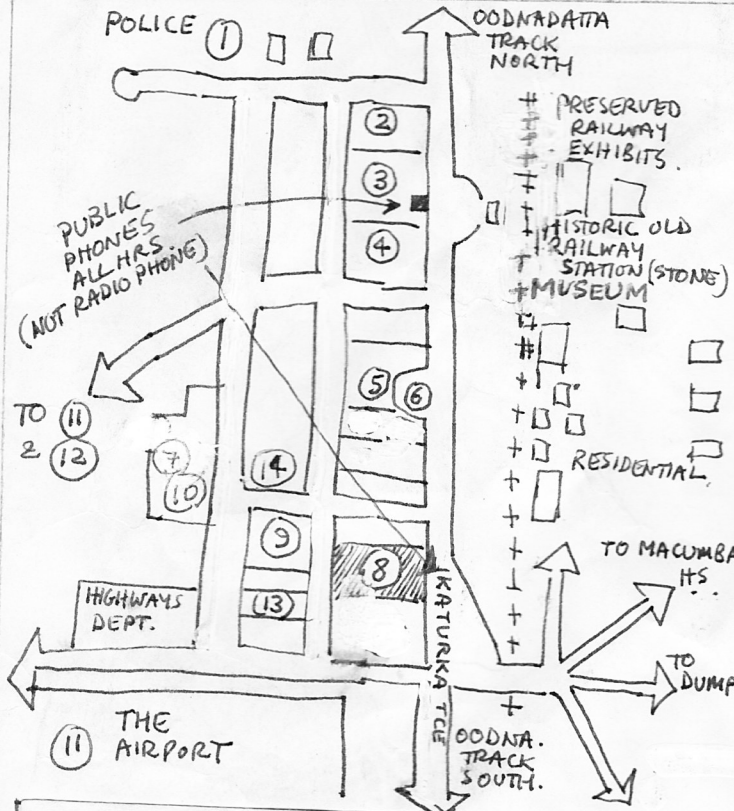 POLICE ①
OODNADATTA
TRACK
NORTH
②
PRESERVED
RAILWAY
EXHIBITS.
③
PUBLIC
PHONES
ALL HRS.
(NOT RADIO PHONE)
④
HISTORIC OLD
RAILWAY
STATION (STONE)
MUSEUM
⑤ ⑥
TO ⑪
& ⑫
⑦
⑩
⑭
RESIDENTIAL
⑨
⑧
TO MACUMBA
HS.
HIGHWAYS
DEPT.
⑬
KATURKA TCE
TO
DUMP
⑪ THE
AIRPORT
OODNA.
TRACK
SOUTH.